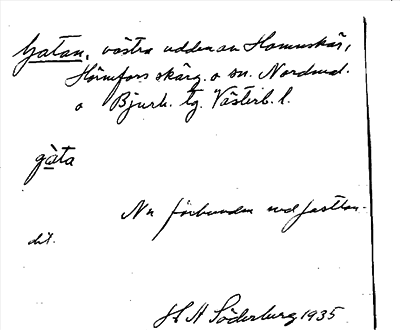 Gatan, västra udden av Hamnskär,
Hörnefors skärg. o sn. Nordmal.
o Bjurh. tg. Västerb. l.
gàta
Nu förbunden med fasttlan-
det.
H A Söderberg 1935